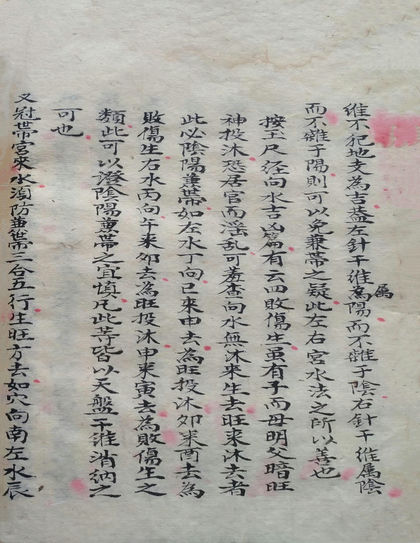 維不犯地支為吉蓋左針干維為屬陽而不雜于陰右針干維屬陰
而不雜于陽則可以免兼帶之疑此左右宮水法之所以善也
按玉尺經向水吉凶篇有云四敗傷生雖有子而母明父暗旺
神投沐恐居官而淫乱可羞查向水無沐來生去旺來沐去者
此必陰陽兼帶如左水丁向巳來申去為旺投沐卯來酉去為
敗傷生右水丙向午來卯去為旺投沐申來寅去為敗傷生之
類此可以證陰陽兼帶之宜慎凡此等皆以天盤干維消納之
可也
又冠帶宮來水須防兼帶三合五行生旺方去如穴向南左水辰